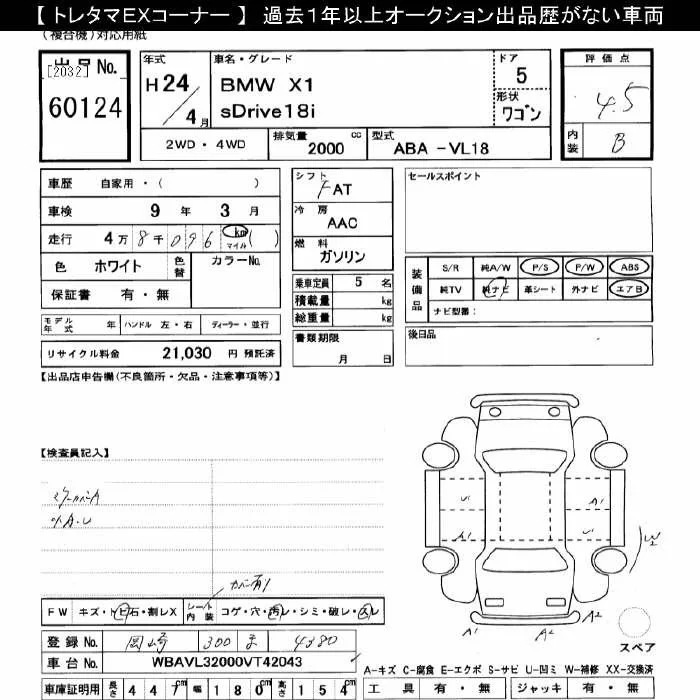 【 トレタマEXコーナー 】 過去1年以上オークション出品歴がない車両
(複合機)対応用紙
出品 No.
[2032]
60124
年式
H 24
4 月
車名・グレード
BMW X1
sDrive18i
ドア
5
形状
ワゴン
評価点
4.5
内装
B
2WD・4WD
排気量 cc
2000
型式
ABA -VL18
車歴 自家用・( )
車検 9 年 3 月
走行 4万 8千 0 9 6 km マイル ( )
色 ホワイト 色替 カラーNo.
保証書 有・無
モデル年式 年 ハンドル 左・右 ディーラー・並行
リサイクル料金 21,030 円 預託済
シフト
FAT
冷房
AAC
燃料
ガソリン
乗車定員 5 名
積載量 kg
総重量 kg
書類期限
月 日
セールスポイント
装備品
S/R 純A/W P/S P/W ABS
純TV 純ナビ 革シート 外ナビ エアB
ナビ型番:
後日品
【出品店申告欄(不良箇所・欠品・注意事項等)】
【検査員記入】
小A.U
カバー有り
FW キズ・トビ石・割レX シート内装 コゲ・穴・汚レ・シミ・破レ・スレ
U' A'
A1 U'
W2
A1 A2 A2
スペア
登録 No. 岡崎 300 ま 4380
車台 No. WBAVL32000VT42043
車庫証明用 長さ 447cm 幅 180cm 高さ 154cm
A-キズ C-腐食 E-エクボ S-サビ U-凹ミ W-補修 XX-交換済
工具 有・無 ジャッキ 有・無